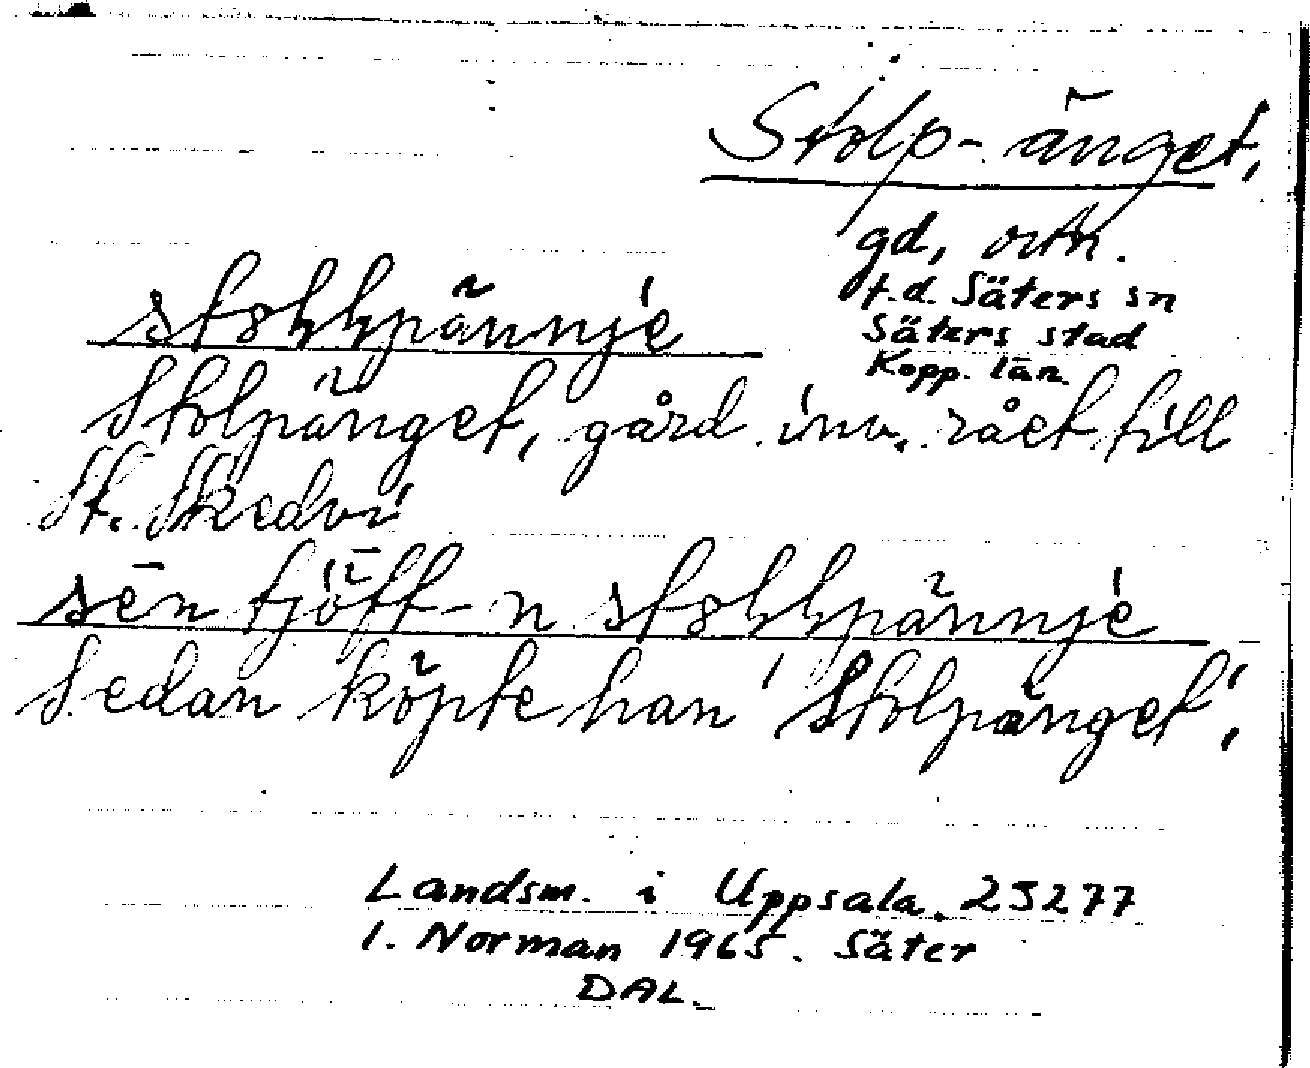 Stolp-änget,
gd, ortn.
f.d. Säters sn
Säters stad
Kopp. län
Stolpänget, gård inv. rået till
St. Skedvi
sēn tjöfft-n
Sedan köpte han 'Stolpänget'.
Landsm. i Uppsala. 25277
I. Norman 1965. Säter
DAL.